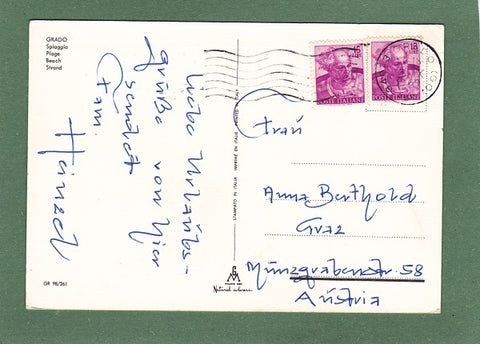 GRADO
Spiaggia
Plage
Beach
Strand
Liebe Urlaubs-
grüße von hier
sendet
Fam.
Heinzel
GR 98/261
STAMPATO IN ITALIA - IMPRIMÉ EN ITALIE - PRINTED IN ITALY
POSTE ITALIANE
POSTE ITALIANE
Frau
Anna Berthold
Graz
Münzgrabenstr. 58
Austria